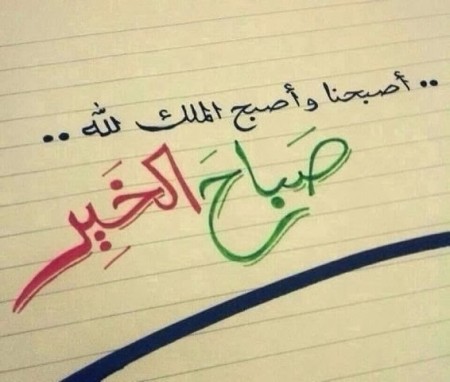 .. أصبحنا وأصبح الملك لله ..
صَباحَ الخَيرِ